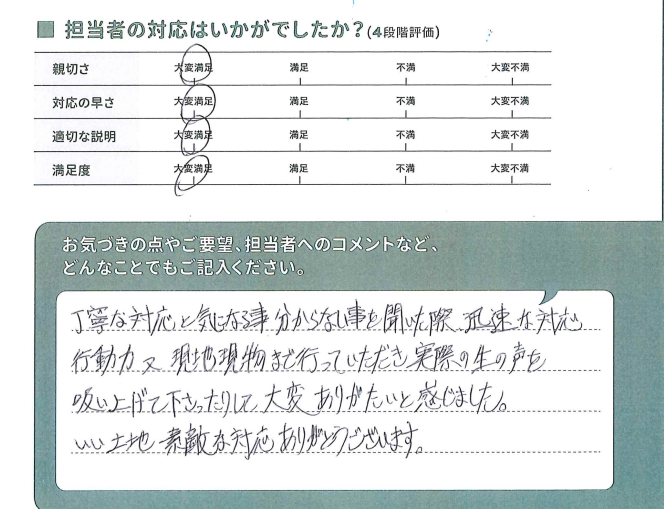 ■ 担当者の対応はいかがでしたか?(4段階評価)
親切さ 大変満足 満足 不満 大変不満
対応の早さ 大変満足 満足 不満 大変不満
適切な説明 大変満足 満足 不満 大変不満
満足度 大変満足 満足 不満 大変不満
お気づきの点やご要望、担当者へのコメントなど、
どんなことでもご記入ください。
丁寧な対応と気になる事 分からない事を聞いた際 迅速な対応
行動力 又 現地現物まで行っていただき 実際の生の声を
吸い上げて下さったりして 大変 ありがたいと感じました。
いい土地 素敵な対応 ありがとうございます。